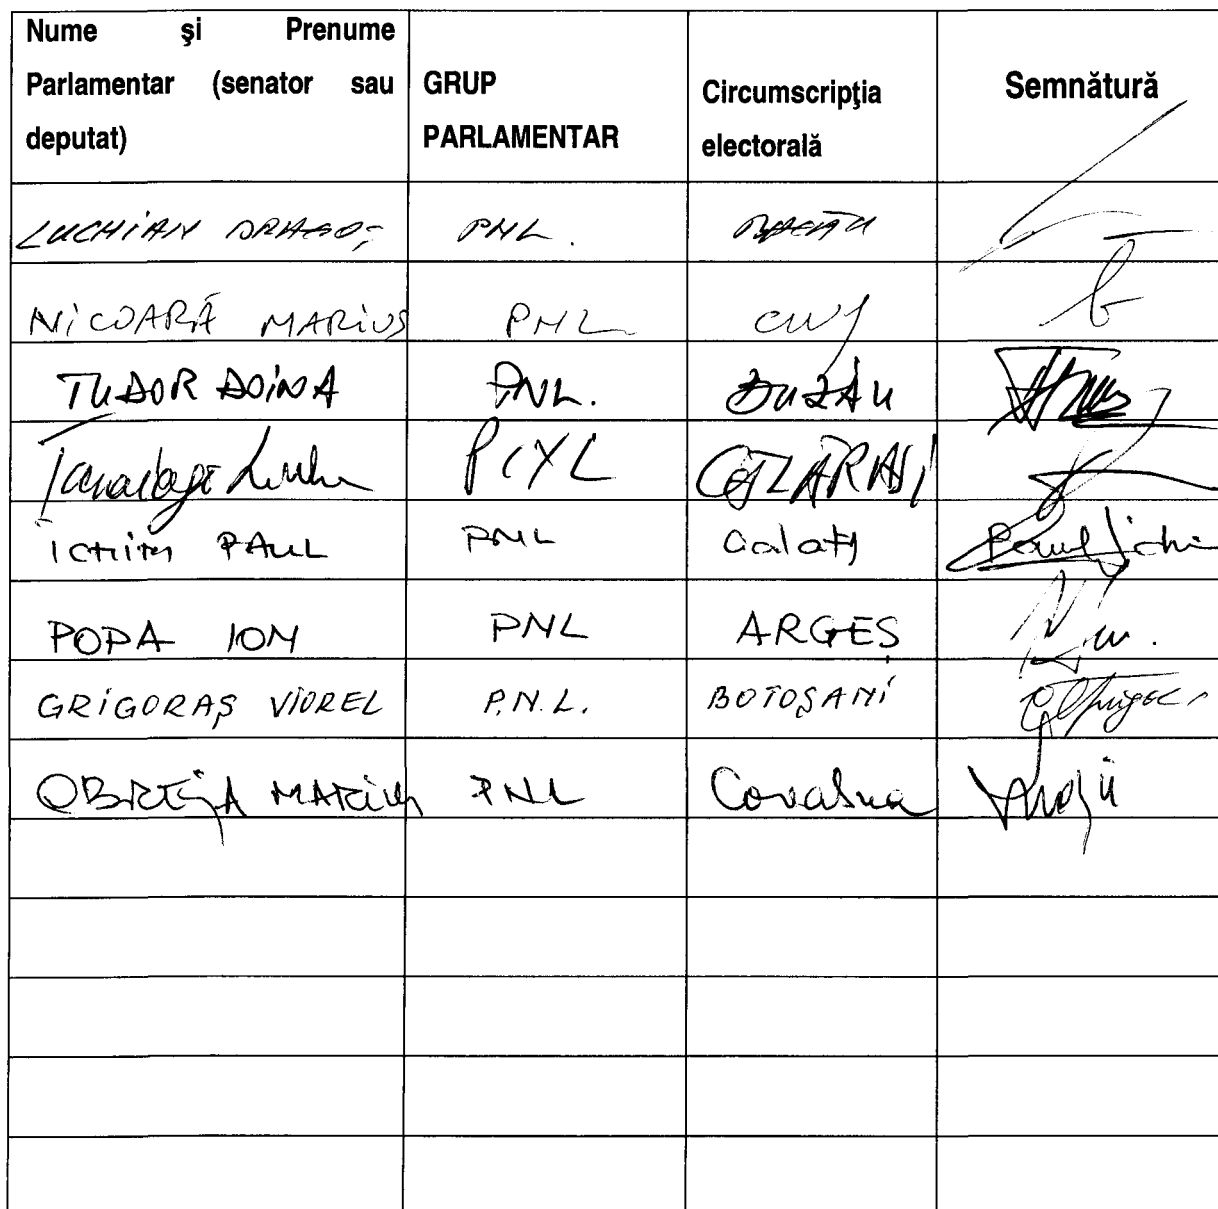 Nume şi Prenume
Parlamentar (senator sau
deputat)
GRUP
PARLAMENTAR
Circumscripţia
electorală
Semnătură
LUCHIAN DRAGOŞ PNL. BACĂU
NICOARĂ MARIUS PNL CLUJ
TUDOR DOINA PNL. BUZĂU
PNL CĂLĂRAŞI
ICHIM PAUL PNL Galaţi Paul Ichi
POPA ION PNL ARGEŞ
GRIGORAŞ VIOREL P.N.L. BOTOŞANI
OBREJA MARIUS PNL Covasna